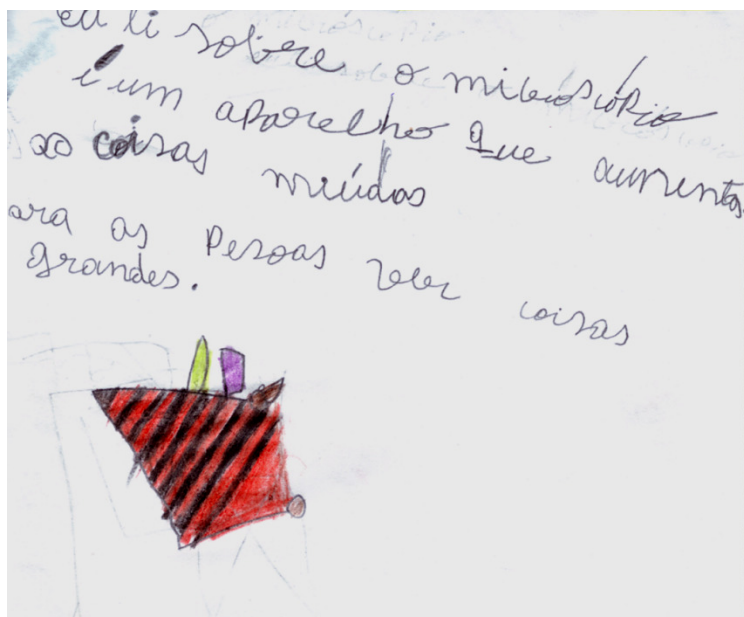 eu li sobre o micioscópio
é um aparelho que aumenta
as coisas miúdas
ara as Pesoas veer coisas
grandes.